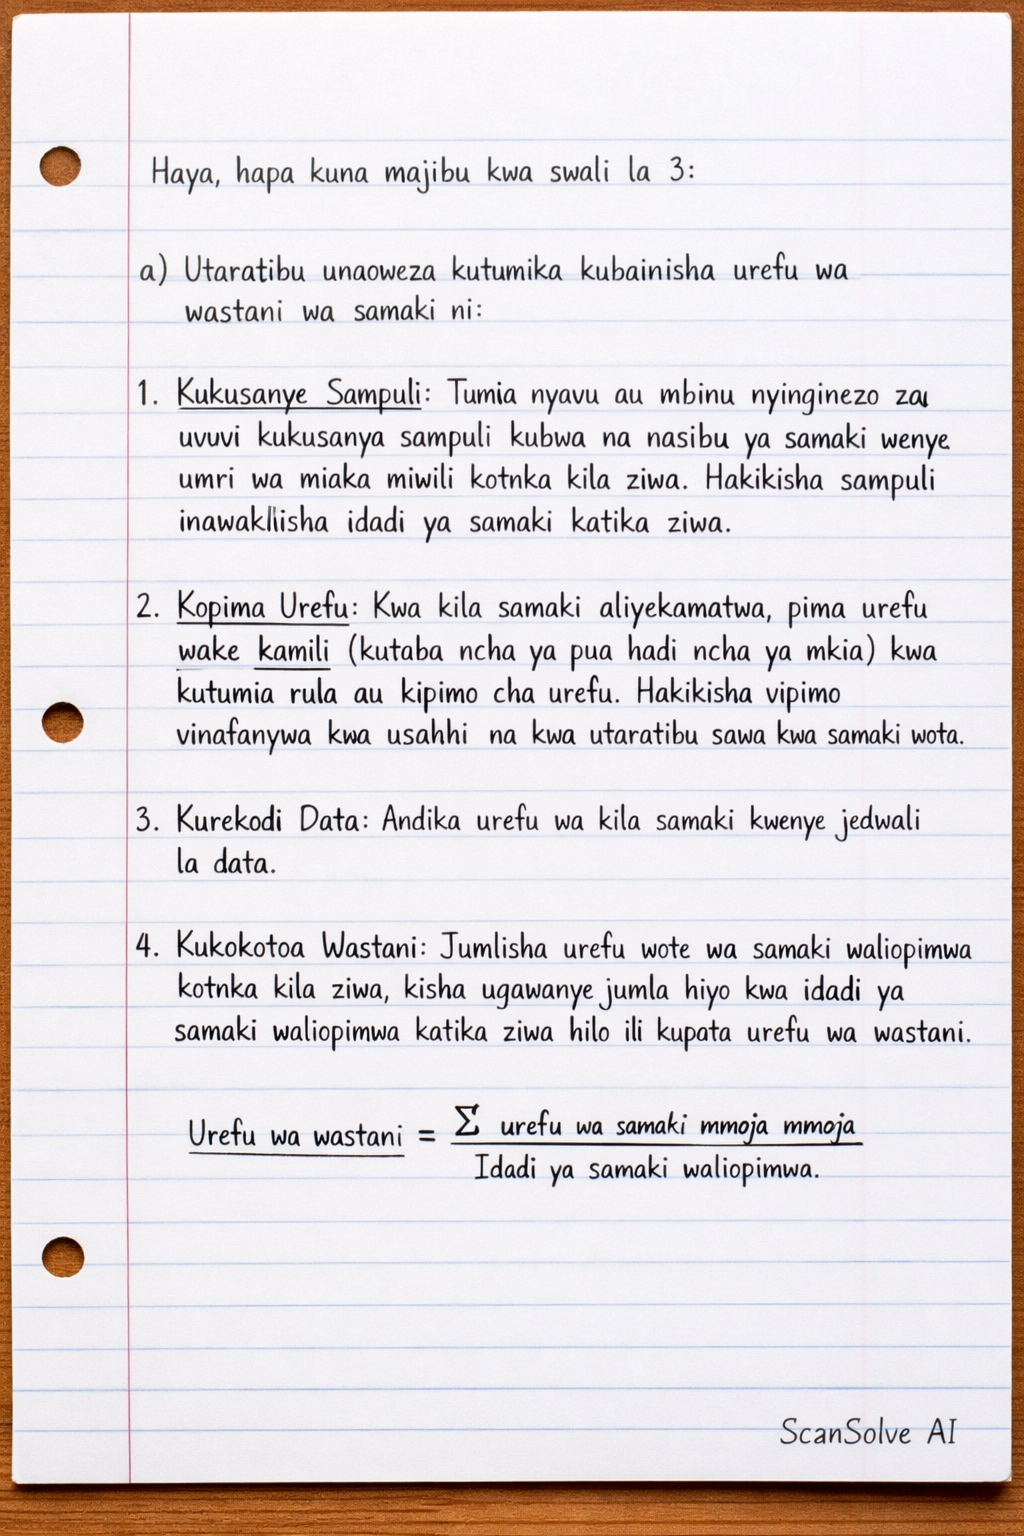 Haya, hapa kuna majibu kwa swali la 3:
a) Utaratibu unaoweza kutumika kubainisha urefu wa
wastani wa samaki ni:
1. Kukusanye Sampuli: Tumia nyavu au mbinu nyinginezo za
uvuvi kukusanya sampuli kubwa na nasibu ya samaki wenye
umri wa miaka miwili kotnka kila ziwa. Hakikisha sampuli
inawakllisha idadi ya samaki katika ziwa.
2. Kopima Urefu: Kwa kila samaki aliyekamatwa, pima urefu
wake kamili (kutaba ncha ya pua hadi ncha ya mkia) kwa
kutumia rula au kipimo cha urefu. Hakikisha vipimo
vinafanywa kwa usahhi na kwa utaratibu sawa kwa samaki wota.
3. Kurekodi Data: Andika urefu wa kila samaki kwenye jedwali
la data.
4. Kukokotoa Wastani: Jumlisha urefu wote wa samaki waliopimwa
kotnka kila ziwa, kisha ugawanye jumla hiyo kwa idadi ya
samaki waliopimwa katika ziwa hilo ili kupata urefu wa wastani.
Urefu wa wastani = Σ urefu wa samaki mmoja mmoja
Idadi ya samaki waliopimwa.
ScanSolve AI